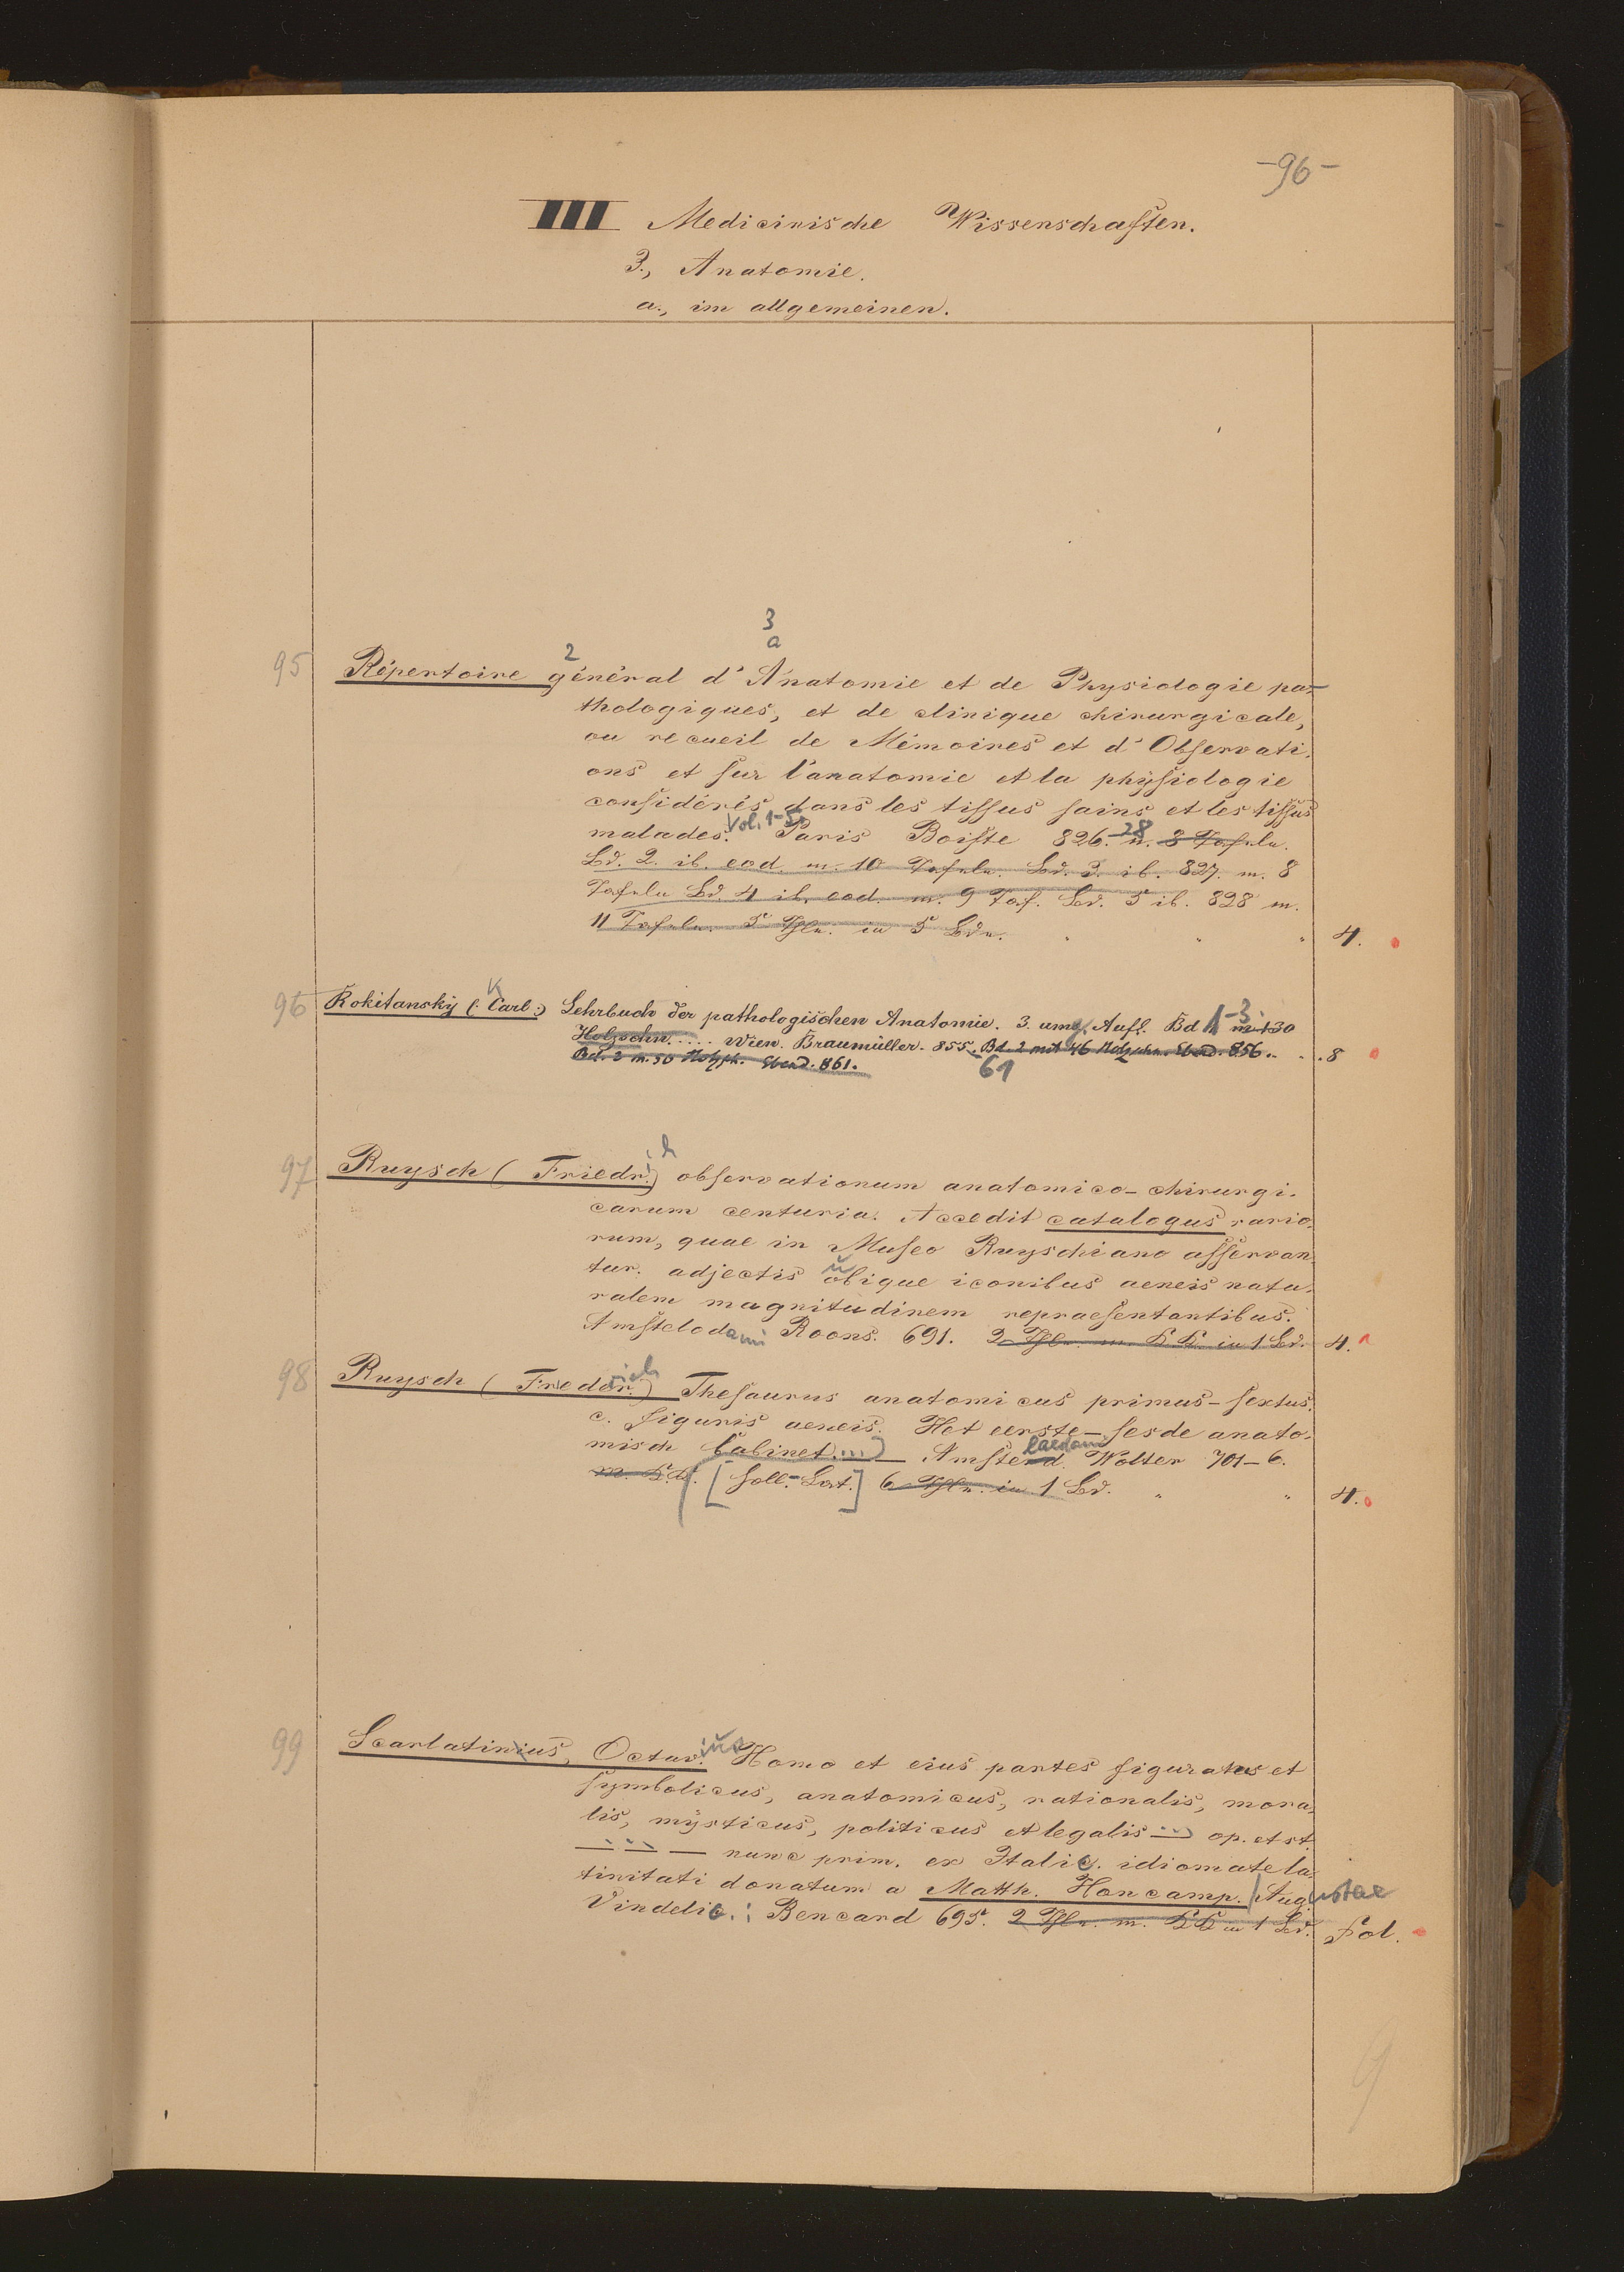 -96-
III Medicinische Wissenschaften.
3., Anatomie.
a., im allgemeinen.
3
2 a
95 Répertoire général d'Anatomie et de Physiologie pa-
thologiques, et de clinique chirurgicale,
ou recueil de Mémoires et d'Observati-
ons et sur l'anatomie et la physiologie
considérés dans les tissus sains et les tissus
malades. Vol. 1-5. Paris Boiste 826.-28 m. 8 Tafeln.
Bd. 2. ib. eod. m. 10 Tafeln. Bd. 3. ib. 827. m. 8
Tafeln Bd. 4 ib. eod. m. 9 Taf. Bd. 5 ib. 828 m.
11 Tafeln. 5 Thle. in 5 Bdn. " " " 4.
K
96 Rokitansky (: Carl :) Lehrbuch der pathologischen Anatomie. 3. umg. Aufl. Bd 1-3. m 130
Holzschn. .... Wien. Braumüller. 855. Bd. 2 mit 46 Holzschn. Ebend. 856. " . . 8
Bd. 3 m. 50 Holzsch. Ebend. 861. 61
97 Ruysch (Friedr.ich) observationum anatomico-chirurgi-
carum centuria. Accedit catalogus rario-
rum, quae in Museo Ruyschiano asservan
tur. adjectis ubique iconibus aeneis natu-
ralem magnitudinem repraesentantibus.
Amstelodami Boons. 691. 2 Thle. m. K.K. in 1 Bd. 4.
98 Ruysch (Friedrich) Thesaurus anatomicus primus-sextus.
c. figuris aeneis. Het eerste-sesde anato-
misch Cabinet...) — Amstelaedami Wolter 701-6.
m. K.K. [holl.-Lat.] 6 Thle. in 1 Bd. " " 4.
99 Scarlatinius, Octavius Homo et eius partes figuratus et
symbolicus, anatomicus, rationalis, mora-
lis, mysticus, politicus et legalis ... op. et st.
... — nunc prim. ex Italic. idiomate la-
tinitati donatum a Matth. Honcamp. | Augustae
Vindelic.: Bencard 695. 2 Thle. m. KK in 1 Bd. Fol.